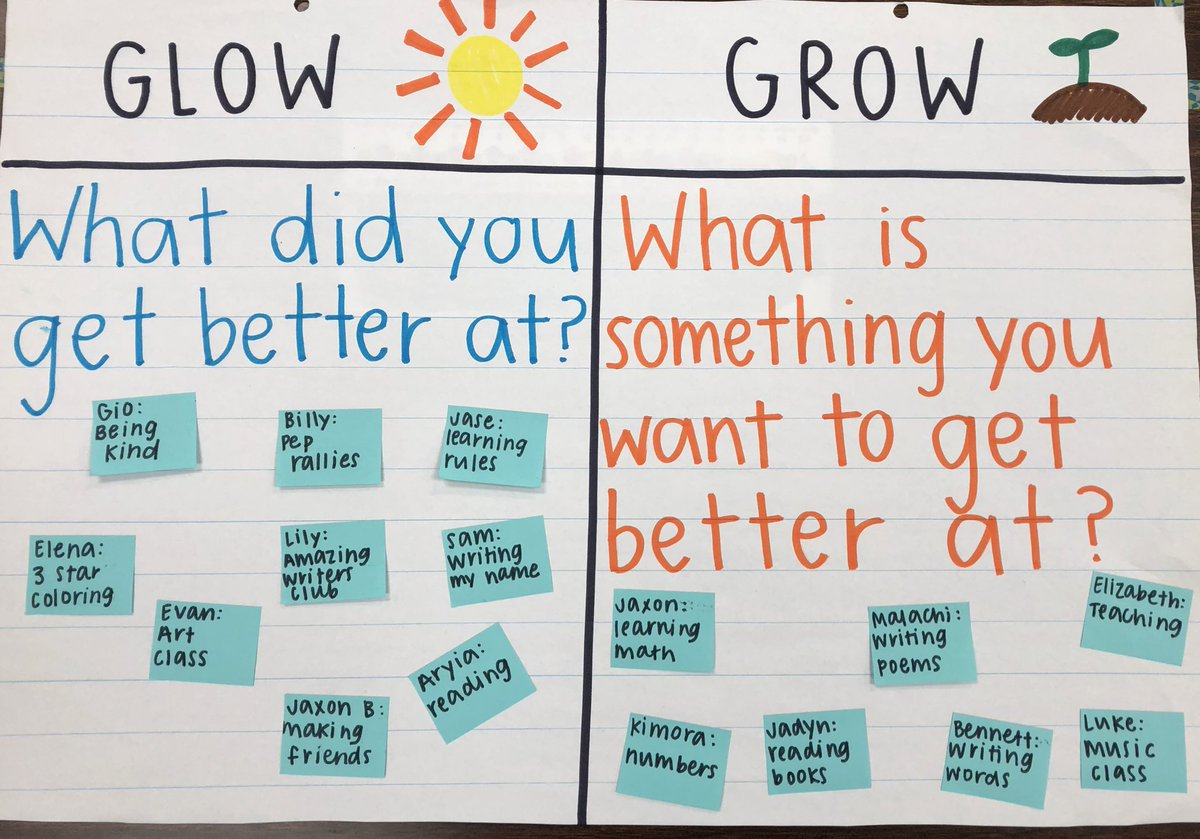 GLOW
What did you
get better at?
Gio:
Being
kind
Billy:
Pep
rallies
Jase:
learning
rules
Elena:
3 star
coloring
Lily:
Amazing
writers
club
Sam:
writing
my name
Evan:
Art
class
Aryia:
reading
Jaxon B:
making
friends
GROW
What is
something you
want to get
better at?
Jaxon:
learning
math
Malachi:
writing
poems
Elizabeth:
Teaching
Kimora:
numbers
Jadyn:
reading
books
Bennett:
writing
words
Luke:
music
class